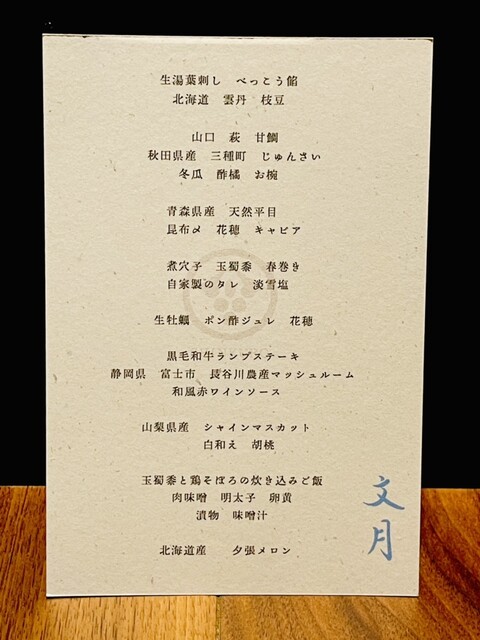 生湯葉刺し　べっこう餡
北海道　雲丹　枝豆
山口　萩　甘鯛
秋田県産　三種町　じゅんさい
冬瓜　酢橘　お椀
青森県産　天然平目
昆布〆　花穂　キャビア
煮穴子　玉蜀黍　春巻き
自家製のタレ　淡雪塩
生牡蠣　ポン酢ジュレ　花穂
黒毛和牛ランプステーキ
静岡県　富士市　長谷川農産マッシュルーム
和風赤ワインソース
山梨県産　シャインマスカット
白和え　胡桃
玉蜀黍と鶏そぼろの炊き込みご飯
肉味噌　明太子　卵黄
漬物　味噌汁
北海道産　夕張メロン
文月